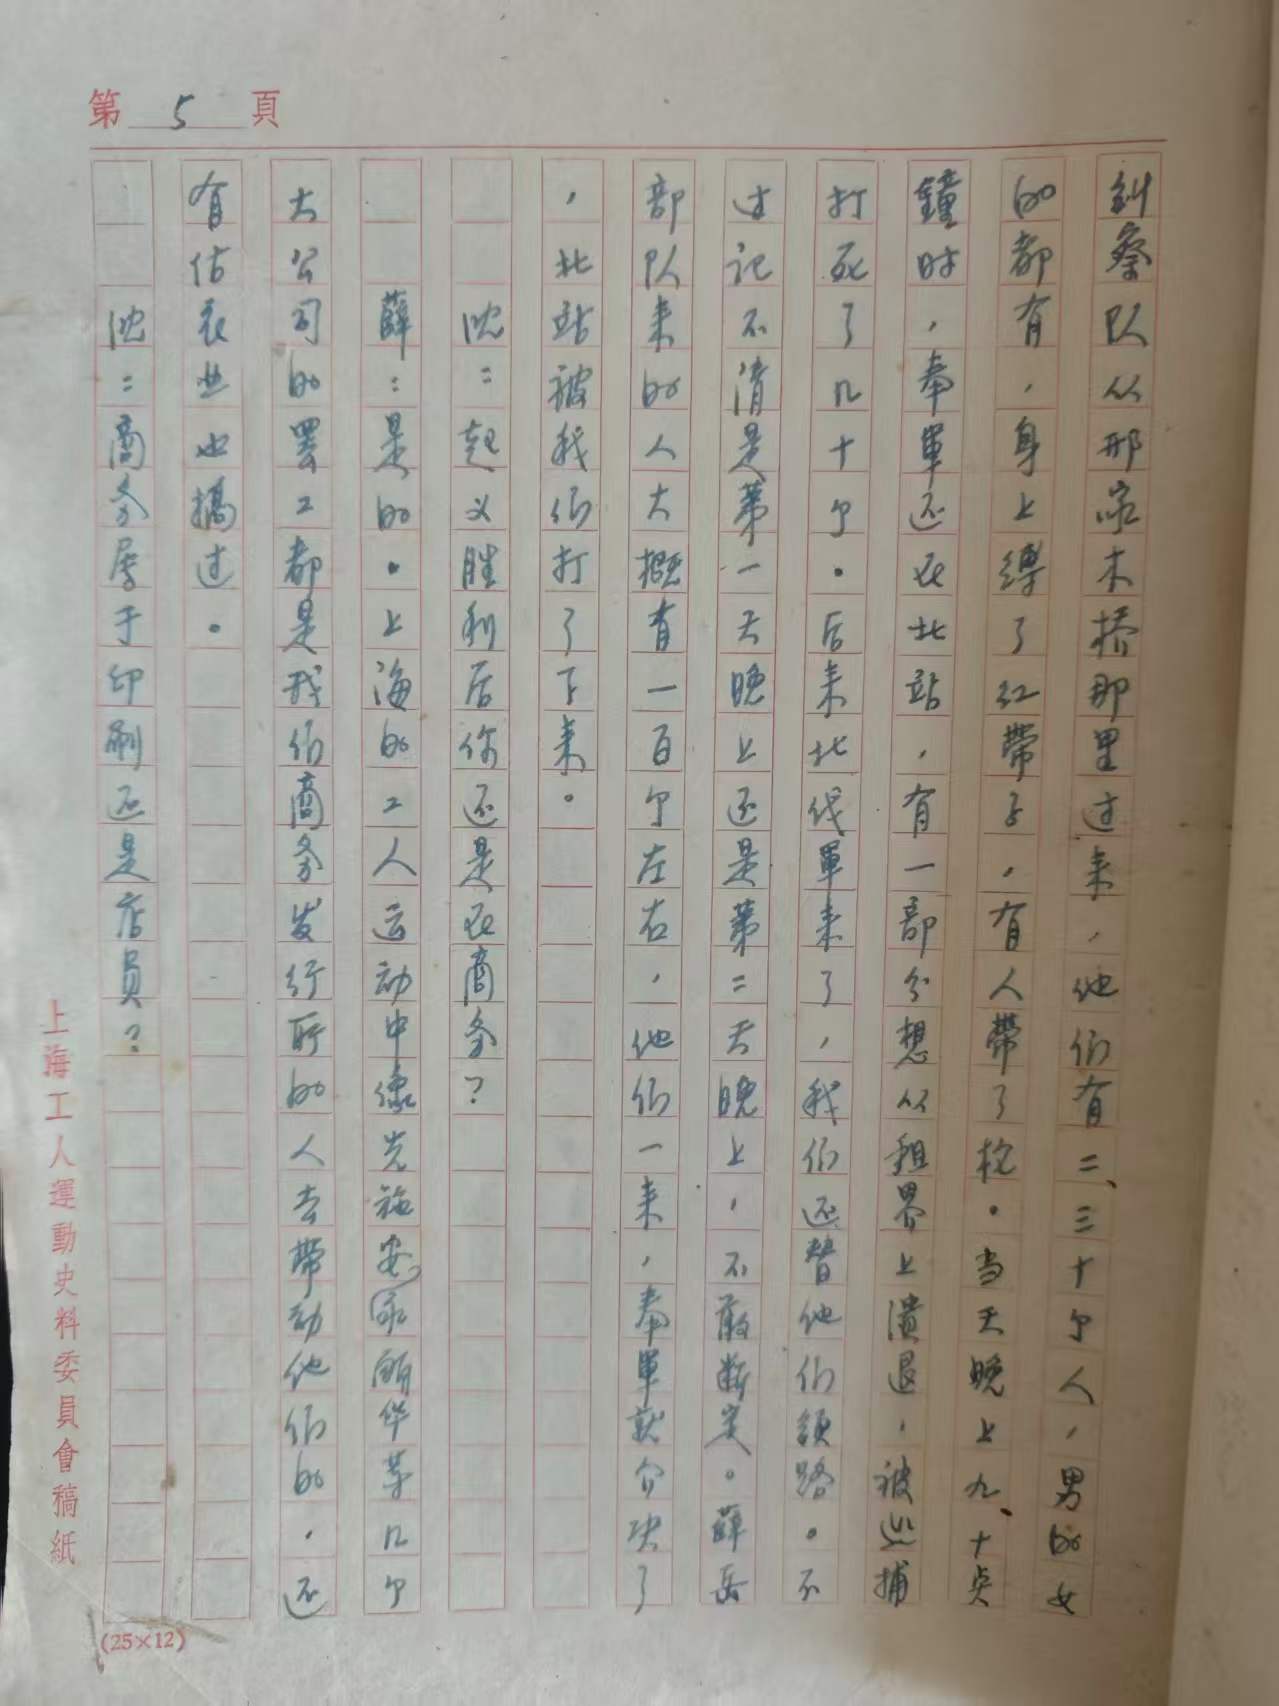 第 5 頁
糾察队从邢家木桥那里过来，他们有二、三十个人，男的女
的都有，身上缚了红帶子，有人帶了枪。当天晚上九、十点
鐘时，奉軍还在北站，有一部分想从租界上潰退，被巡捕
打死了几十个。后来北伐軍来了，我们还替他们領路。不
过记不清是第一天晚上还是第二天晚上，不敢断定。薛岳
部队来的人大概有一百个左右，他们一来，奉軍就介决了
，北站被我们打了下来。
沈：起义胜利后你还是在商务？
薛：是的。上海的工人运动中像先施安永丽华等几个
大公司的罢工都是我们商务发行所的人去帶动他们的，还
有估衣业也搞过。
沈：商务属于印刷还是店員？
上海工人運動史料委員會稿紙
(25×12)